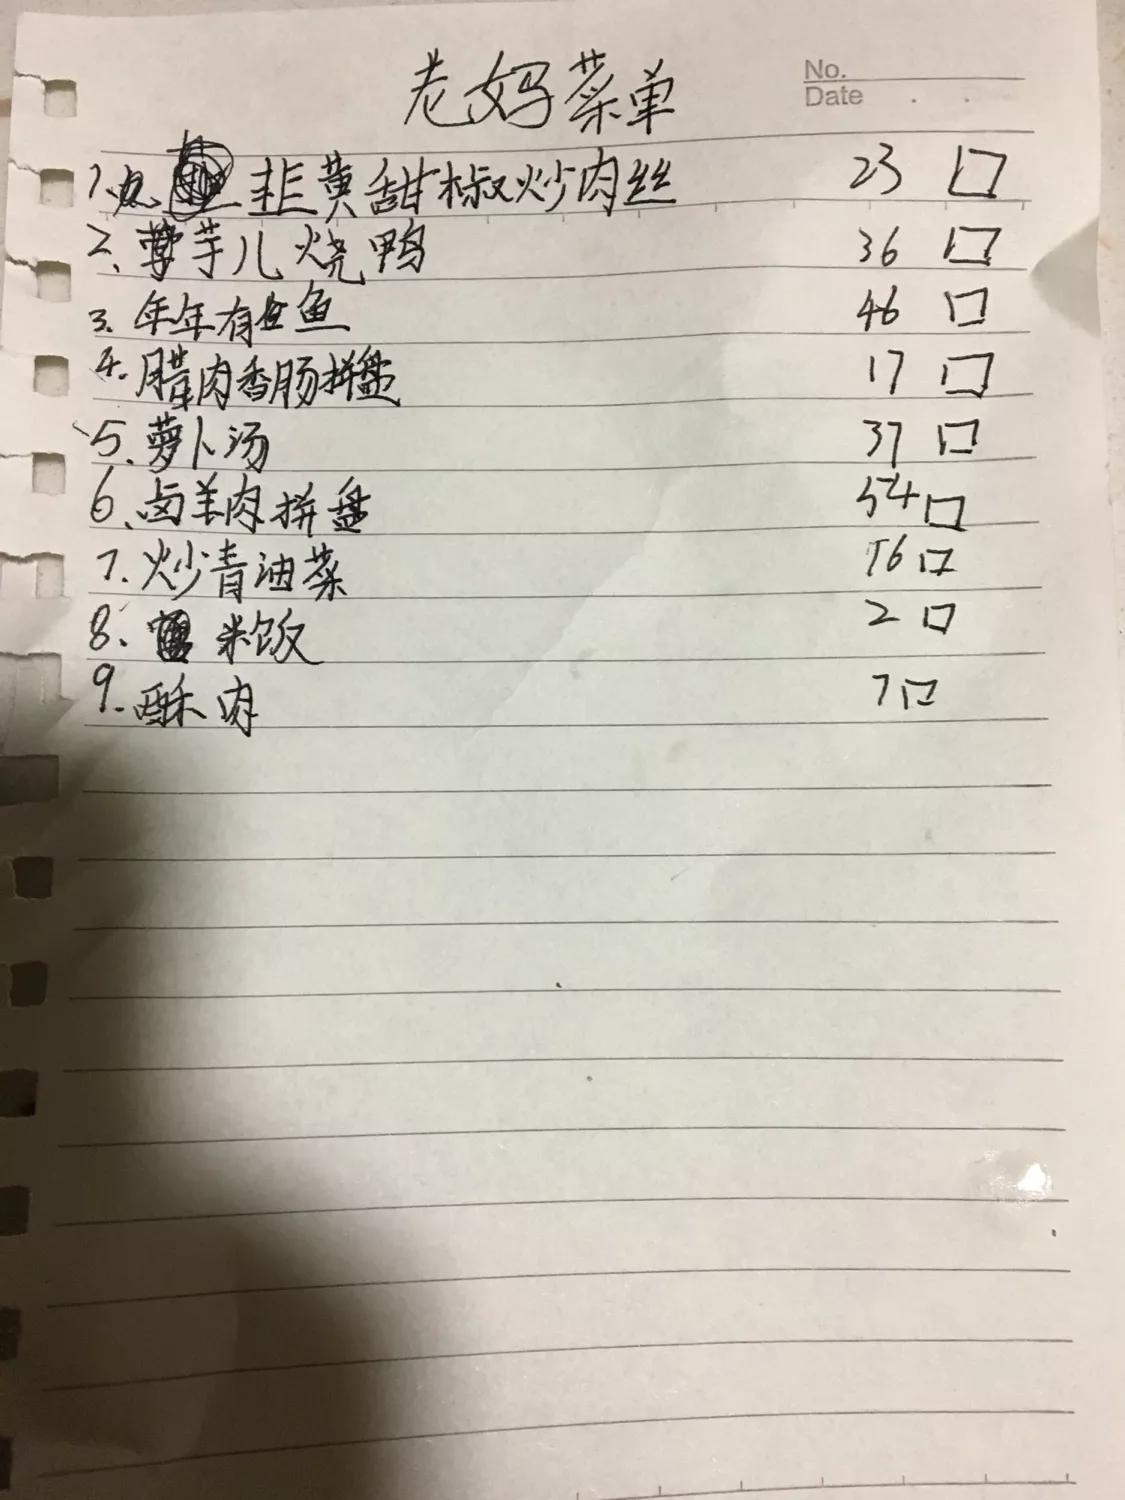 老妈菜单
No.
Date
1. 韭黄甜椒炒肉丝 23 口
2. 芋儿烧鸭 36 口
3. 年年有鱼 46 口
4. 腊肉香肠拼盘 17 口
5. 萝卜汤 37 口
6. 卤羊肉拼盘 54 口
7. 炒青油菜 16 口
8. 米饭 2 口
9. 酥肉 7 口